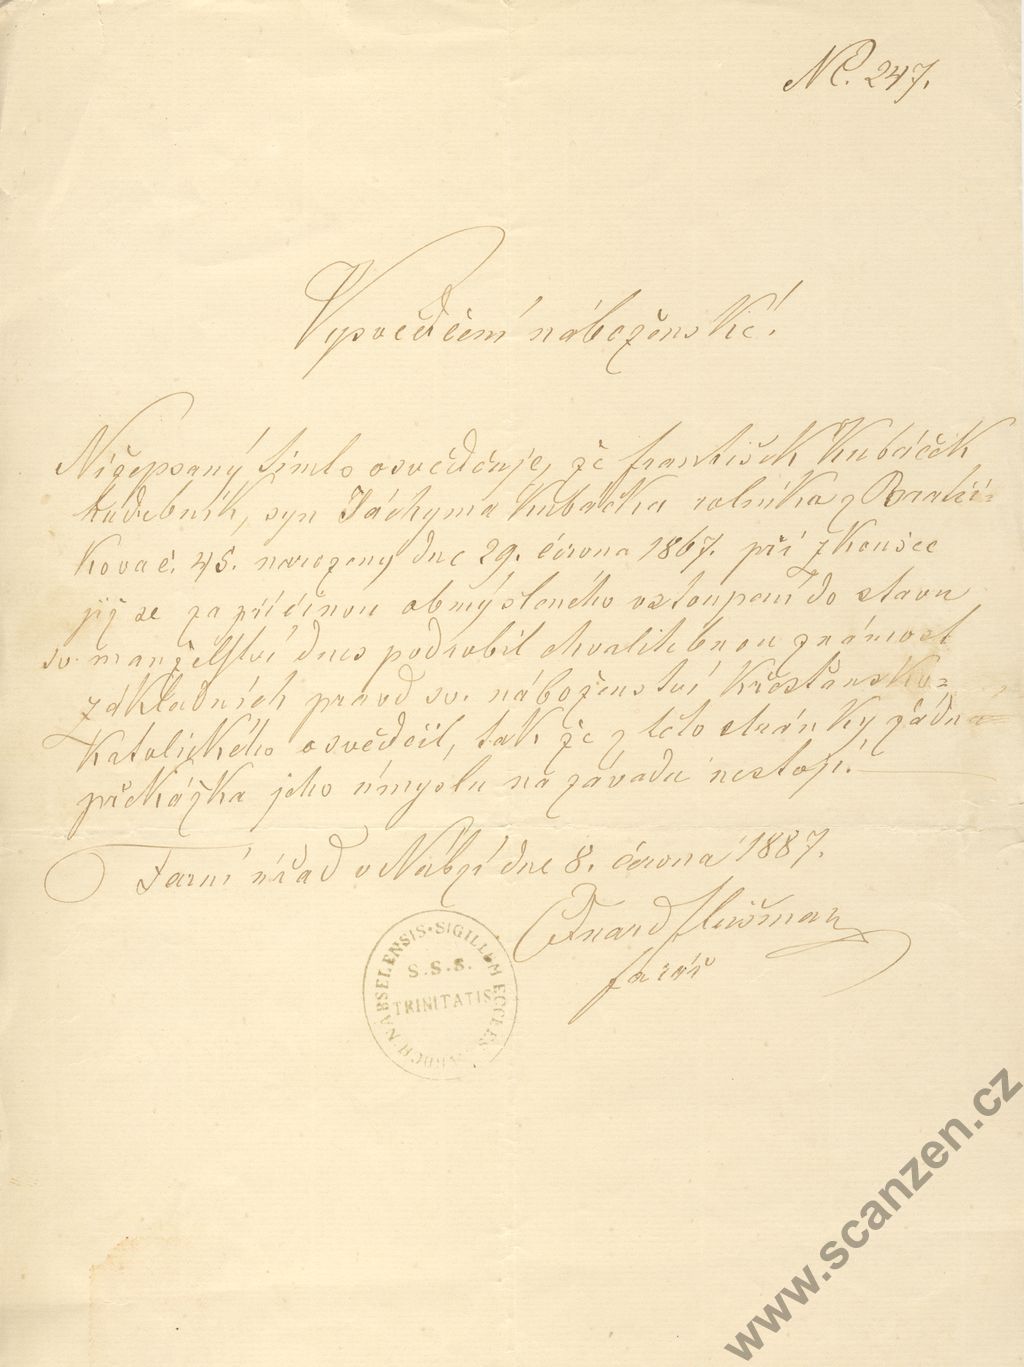 NC. 247.
Vysvědčení náboženské!
Nížepsaný tímto osvědčuje, že František Kubáček
hudebník, syn Jáchyma Kubáčka rolníka z Bratří-
kova č. 45. narozený dne 29. června 1867. při zkoušce
jíž se za příčinou obmýšleného vstoupení do stavu
sv. manželství dnes podrobil chvalitebnou známost
základních pravd sv. náboženství křesťansko-
katolického osvědčil, tak že z této stránky žádná
překážka jeho úmyslu na závadu nestojí.
Farní úřad v Nábzí dne 8. června 1887.
farář
SIGILLUM ECCLES. PAROCH. NABSELENSIS
S.S.S.
TRINITATIS
www.scanzen.cz